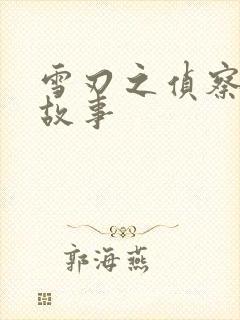 雪刃之偵察
故事
郭海燕